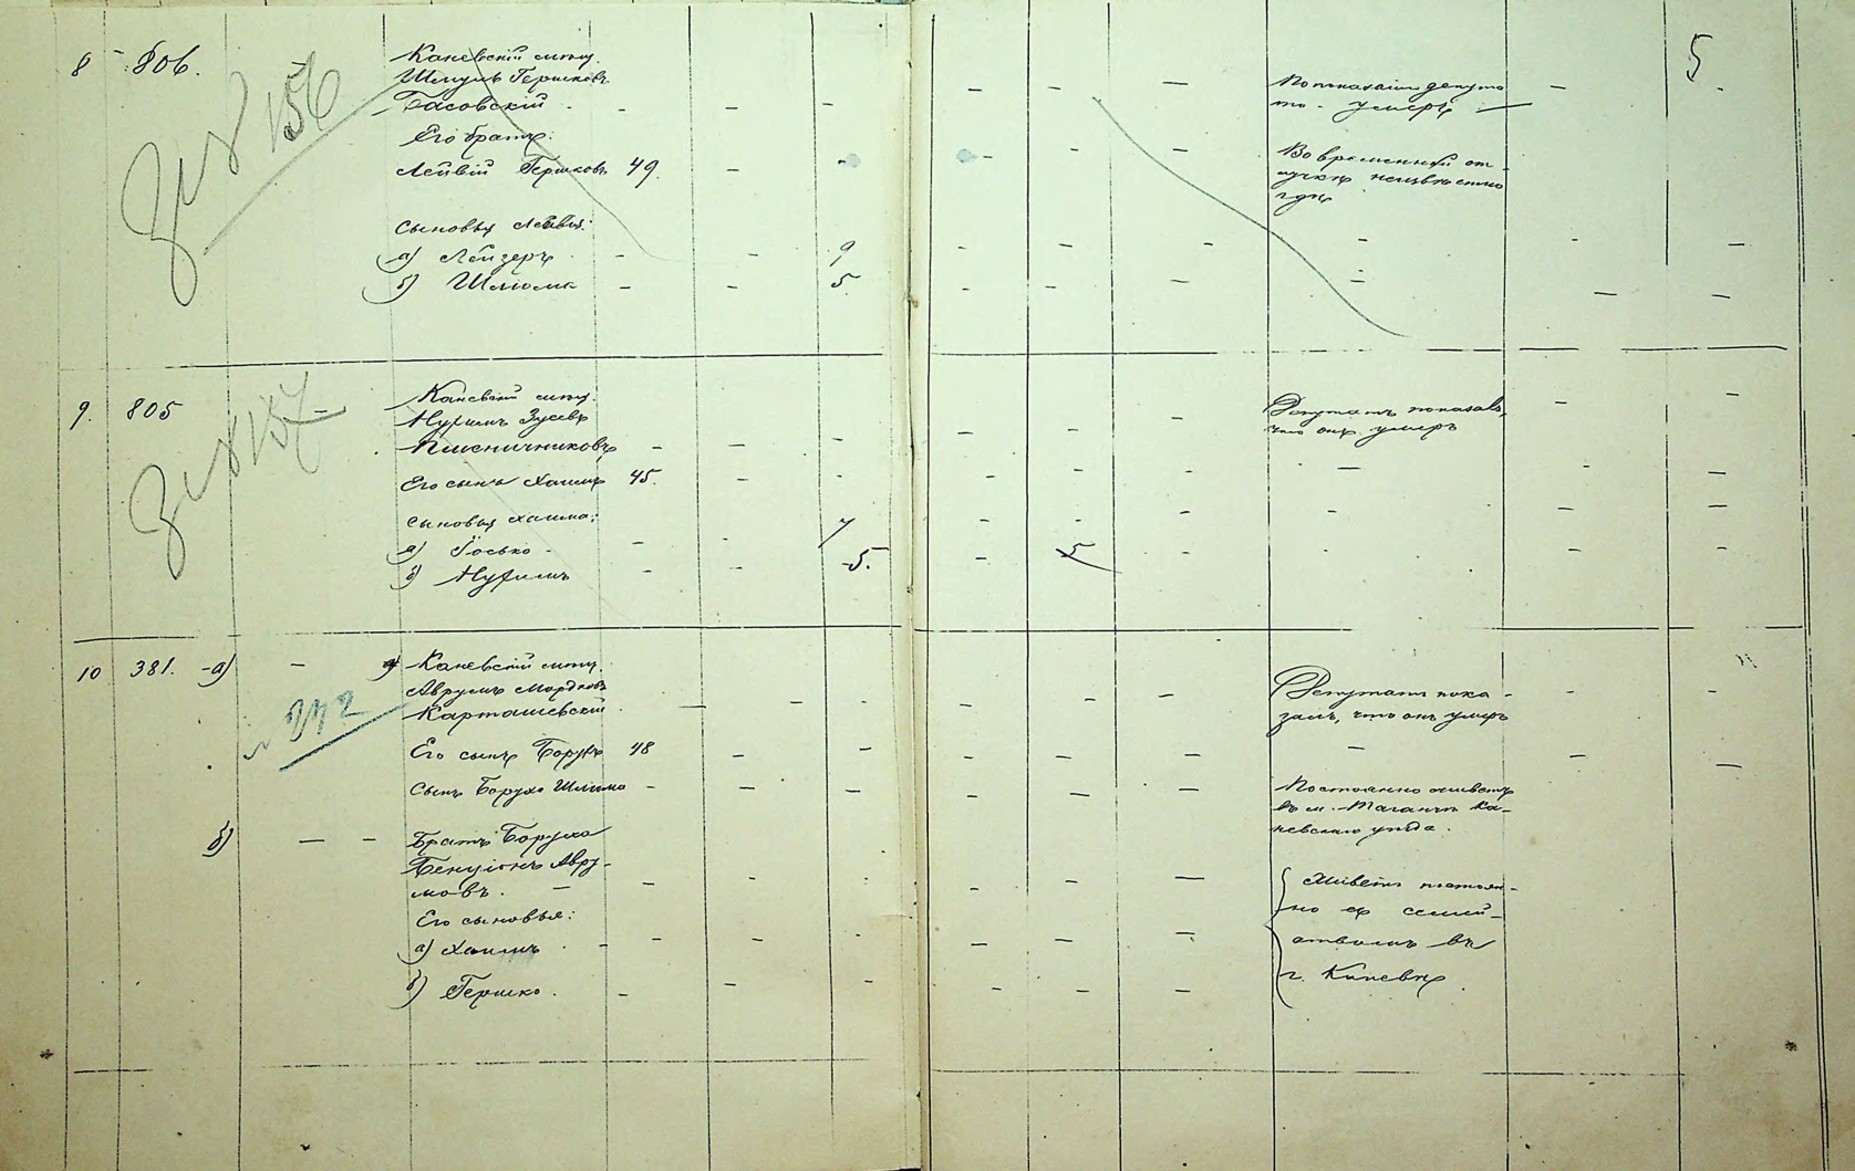 8 806.
Каневскій мѣщ.
Шмуль Гершковъ
Басовскій
Его братъ:
Лейвій Гершковъ 49.
Сыновья Лейвія:
а) Лейзеръ 9
б) Шлиома 5
По показанію депута
та - умеръ
Во временной от-
лучкѣ неизвѣстно
гдѣ
5
156
9. 805
Каневскій мѣщ.
Нухимъ Зусевъ
Пшеничниковъ
Его сынъ Хаимъ 45.
Сыновья Хаима:
а) Іосько 7
б) Нухимъ 5.
5
Депутатъ показалъ,
что онъ умеръ
157
10 381. а)
Каневскій мѣщ.
Аврумъ Мордковъ
Карташевскій
Его сынъ Борухъ 48
Сынъ Боруха Шлиома
б) Братъ Боруха
Бенціонъ Авру-
мовъ.
Его сыновья:
а) Хаимъ
б) Гершко.
Депутатъ пока-
залъ, что онъ умеръ
Постоянно живетъ
въ м. Таганчѣ Ка-
невскаго уѣзда.
Живетъ постоян-
но съ семей-
ствомъ въ
г. Каневѣ